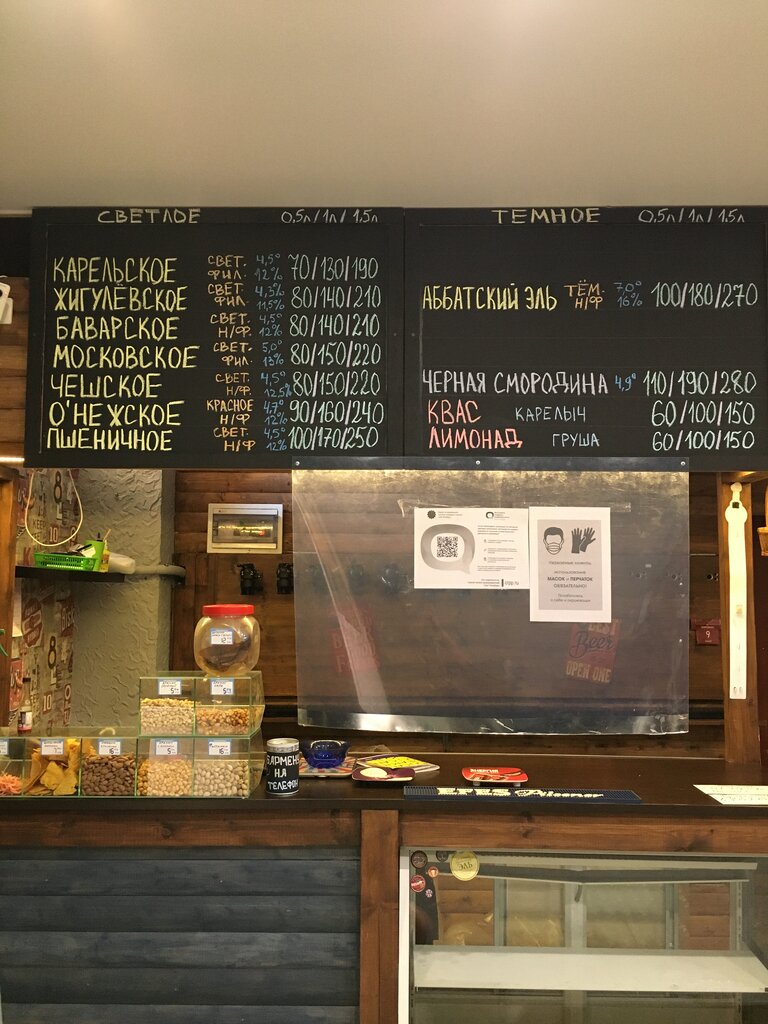 СВЕТЛОЕ 0,5л/1л/1,5л
КАРЕЛЬСКОЕ СВЕТ. ФИЛ. 4,5° 12% 70/130/190
ЖИГУЛЁВСКОЕ СВЕТ. ФИЛ. 4,3° 11,5% 80/140/210
БАВАРСКОЕ СВЕТ. Н/Ф. 4,5° 12% 80/140/210
МОСКОВСКОЕ СВЕТ. ФИЛ. 5,0° 13% 80/150/220
ЧЕШСКОЕ СВЕТ. Н/Ф. 4,5° 12,5% 80/150/220
О'НЕЖСКОЕ КРАСНОЕ Н/Ф 4,7° 12% 90/160/240
ПШЕНИЧНОЕ СВЕТ. Н/Ф 4,5° 12% 100/170/250
ТЕМНОЕ 0,5л/1л/1,5л
АББАТСКИЙ ЭЛЬ ТЁМ. Н/Ф 7,0° 16% 100/180/270
ЧЕРНАЯ СМОРОДИНА 4,9° 110/190/280
КВАС КАРЕЛЫЧ 60/100/150
ЛИМОНАД ГРУША 60/100/150
использование
МАСОК и ПЕРЧАТОК
ОБЯЗАТЕЛЬНО!
Beer
OPEN ONE
БАРМЕНУ
НА
ТЕЛЕФОН
ЭЛЬ